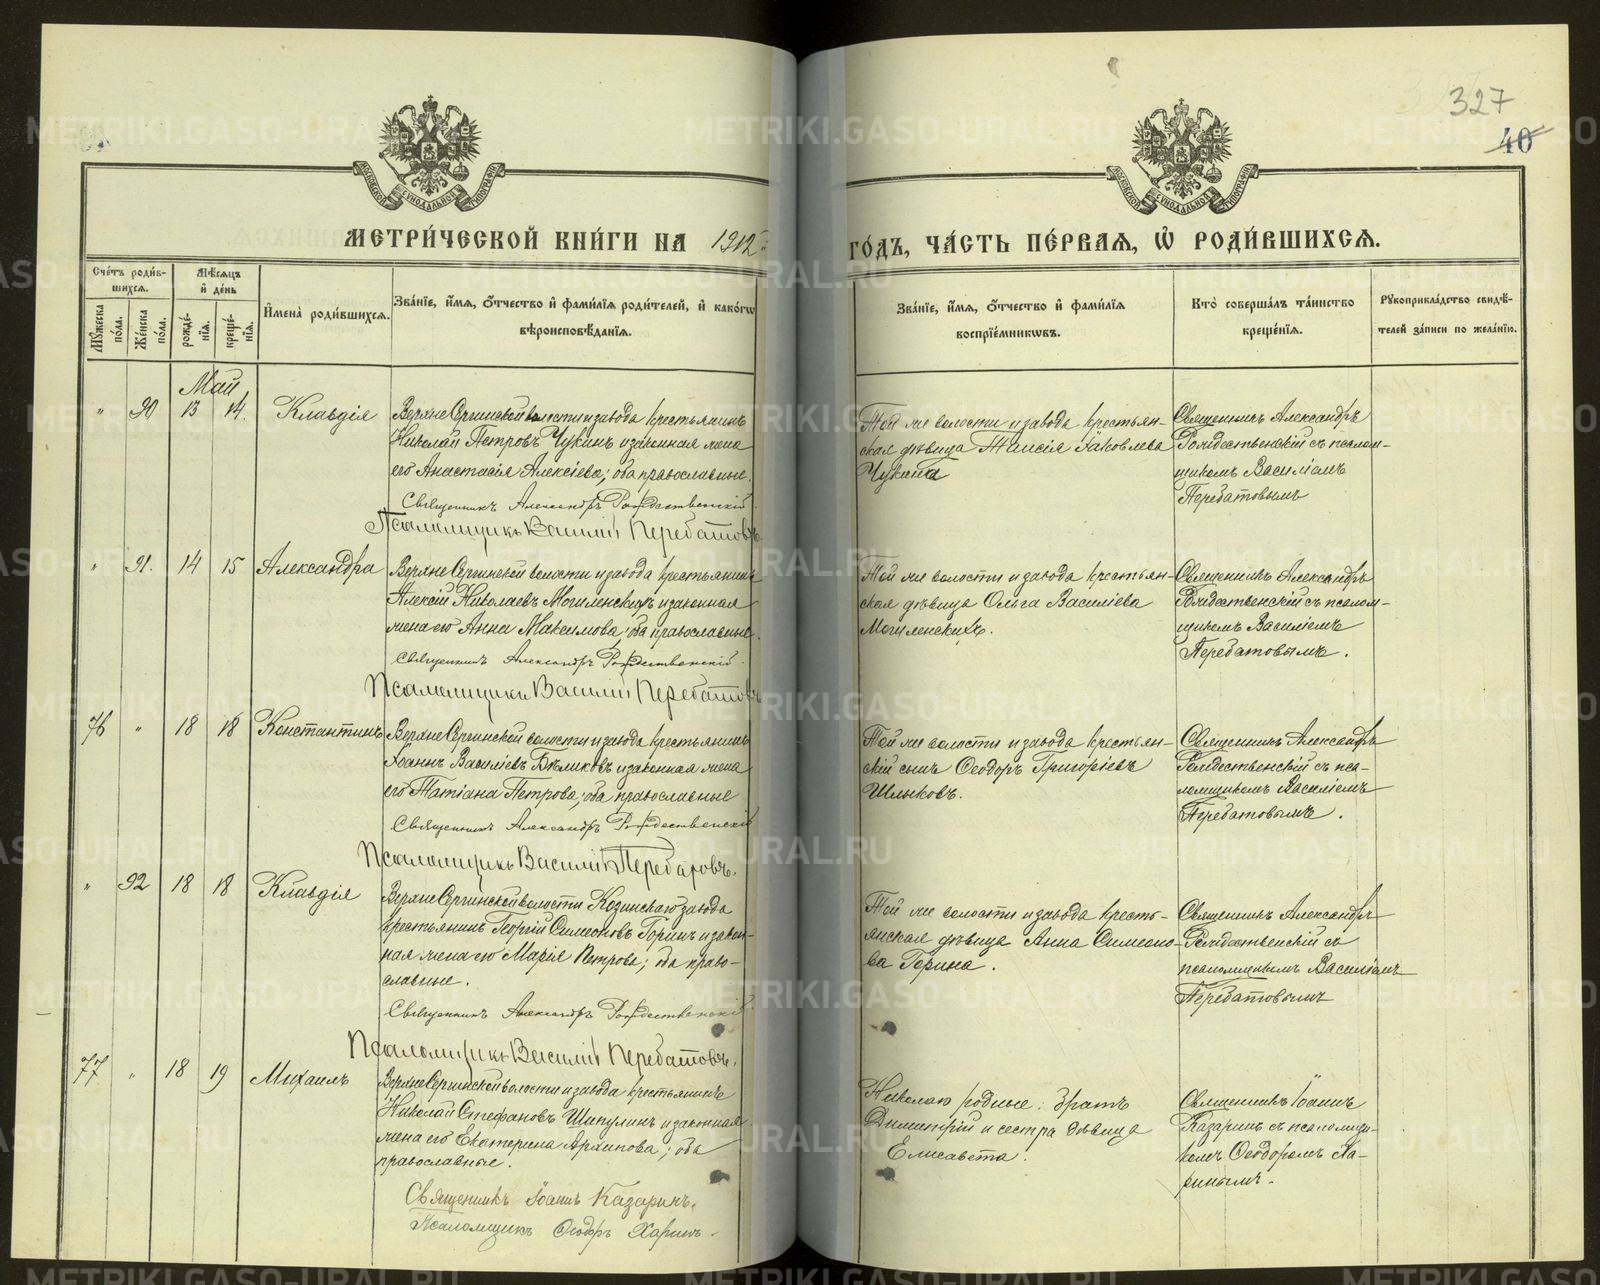 327
40
МЕТРИ́ЧЕСКОЙ КНИ́ГИ НА 1912
ГО́ДЪ, ЧА́СТЬ ПЕ́РВАЯ, Ѿ РОДИ́ВШИХСЯ.
Сче́тъ роди́в-
шихся.
Мѣ́сяцъ
и҆ де́нь
Мꙋ́жеска
по́ла.
Же́нска
по́ла.
рожде́-
нїя.
креще́-
нїя.
И҆мена̀ роди́вшихся.
Зва́нїе, и҆́мя, ѻ҆́тчество и҆ фамѝлїя роди́телей, и҆ како́гѡ
вѣроисповѣ́данїя.
Зва́нїе, и҆́мя, ѻ҆́тчество и҆ фамѝлїя
воспрїе́мникѡвъ.
Кто̀ соверша́лъ та́инство
креще́нїя.
Рꙋкоприкла́дство свидѣ́-
телей за́писи по жела́нїю.
Май
" 90 13 14. Клавдія
Верхне Сергинской волости и завода крестьянинъ
Николай Петровъ Чукинъ и законная жена
его Анастасія Алексіева; оба православные.
Священникъ Александръ Рождественскій
Псаломщикъ Василій Перебатовъ
Той же волости и завода крестьян-
ская дѣвица Таисія Іаковлева
Чукина
Священникъ Александръ
Рождественскій съ псалом-
щикомъ Василіемъ
Перебатовымъ
" 91. 14 15 Александра
Верхне Сергинской волости и завода крестьянинъ
Алексій Николаевъ Могиленскихъ и законная
жена его Анна Максимова; оба православные.
Священникъ Александръ Рождественскій.
Псаломщикъ Василій Перебатовъ
Той же волости и завода крестьян-
ская дѣвица Ольга Василіева
Могиленскихъ.
Священникъ Александръ
Рождественскій съ псалом-
щикомъ Василіемъ
Перебатовымъ.
76 " 18 18 Константинъ
Верхне Сергинской волости и завода крестьянинъ
Іоаннъ Василіевъ Бѣликовъ и законная жена
его Татіана Петрова; оба православные
Священникъ Александръ Рождественскій
Псаломщикъ Василій Перебатовъ.
Той же волости и завода крестьян-
скій сынъ Ѳеодоръ Григоріевъ
Шлыковъ.
Священникъ Александръ
Рождественскій съ пса-
ломщикомъ Василіемъ
Перебатовымъ.
" 92 18 18 Клавдія
Верхне Сергинской волости Козинскаго завода
крестьянинъ Георгій Симеоновъ Горинъ и закон-
ная жена его Марія Петрова; оба право-
славные.
Священникъ Александръ Рождественскій
Псаломщикъ Василій Перебатовъ.
Той же волости и завода кресть-
янская дѣвица Анна Симеоно-
ва Горина.
Священникъ Александръ
Рождественскій съ
псаломщикомъ Василіемъ
Перебатовымъ
77 " 18 19 Михаилъ
Верхне Сергинской волости и завода крестьянинъ
Николай Стефановъ Шипулинъ и законная
жена его Екатерина Архипова; оба
православные.
Священникъ Іоаннъ Казаринъ.
Псаломщикъ Ѳеодоръ Харинъ.
Николаю родные: братъ
Димитрій и сестра дѣвица
Елисавета.
Священникъ Іоаннъ
Казаринъ съ псаломщи-
комъ Ѳеодоромъ Ха-
ринымъ.
METRIKI.GASO-URAL.RU